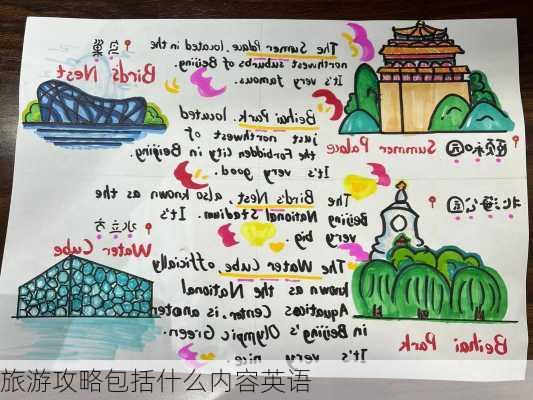 鸟巢
Bird's Nest
The Sumer Palaue. located in the
northwest suburbs of Beijing.
It's very famous.
颐和园
Summer Palace
Beihai Park. located
just northwest of
the Forbidden City in Beijing.
It's very good.
水立方
Water Cube
The Bird's Nest. also known as the
Beijing National Stadium. It's
very big.
北海公园
Beihai Park
The Water Cube officially
known as the National
Aquatics Center, is
in Beijing's Olympic Green.
It's very nice.
旅游攻略包括什么内容英语